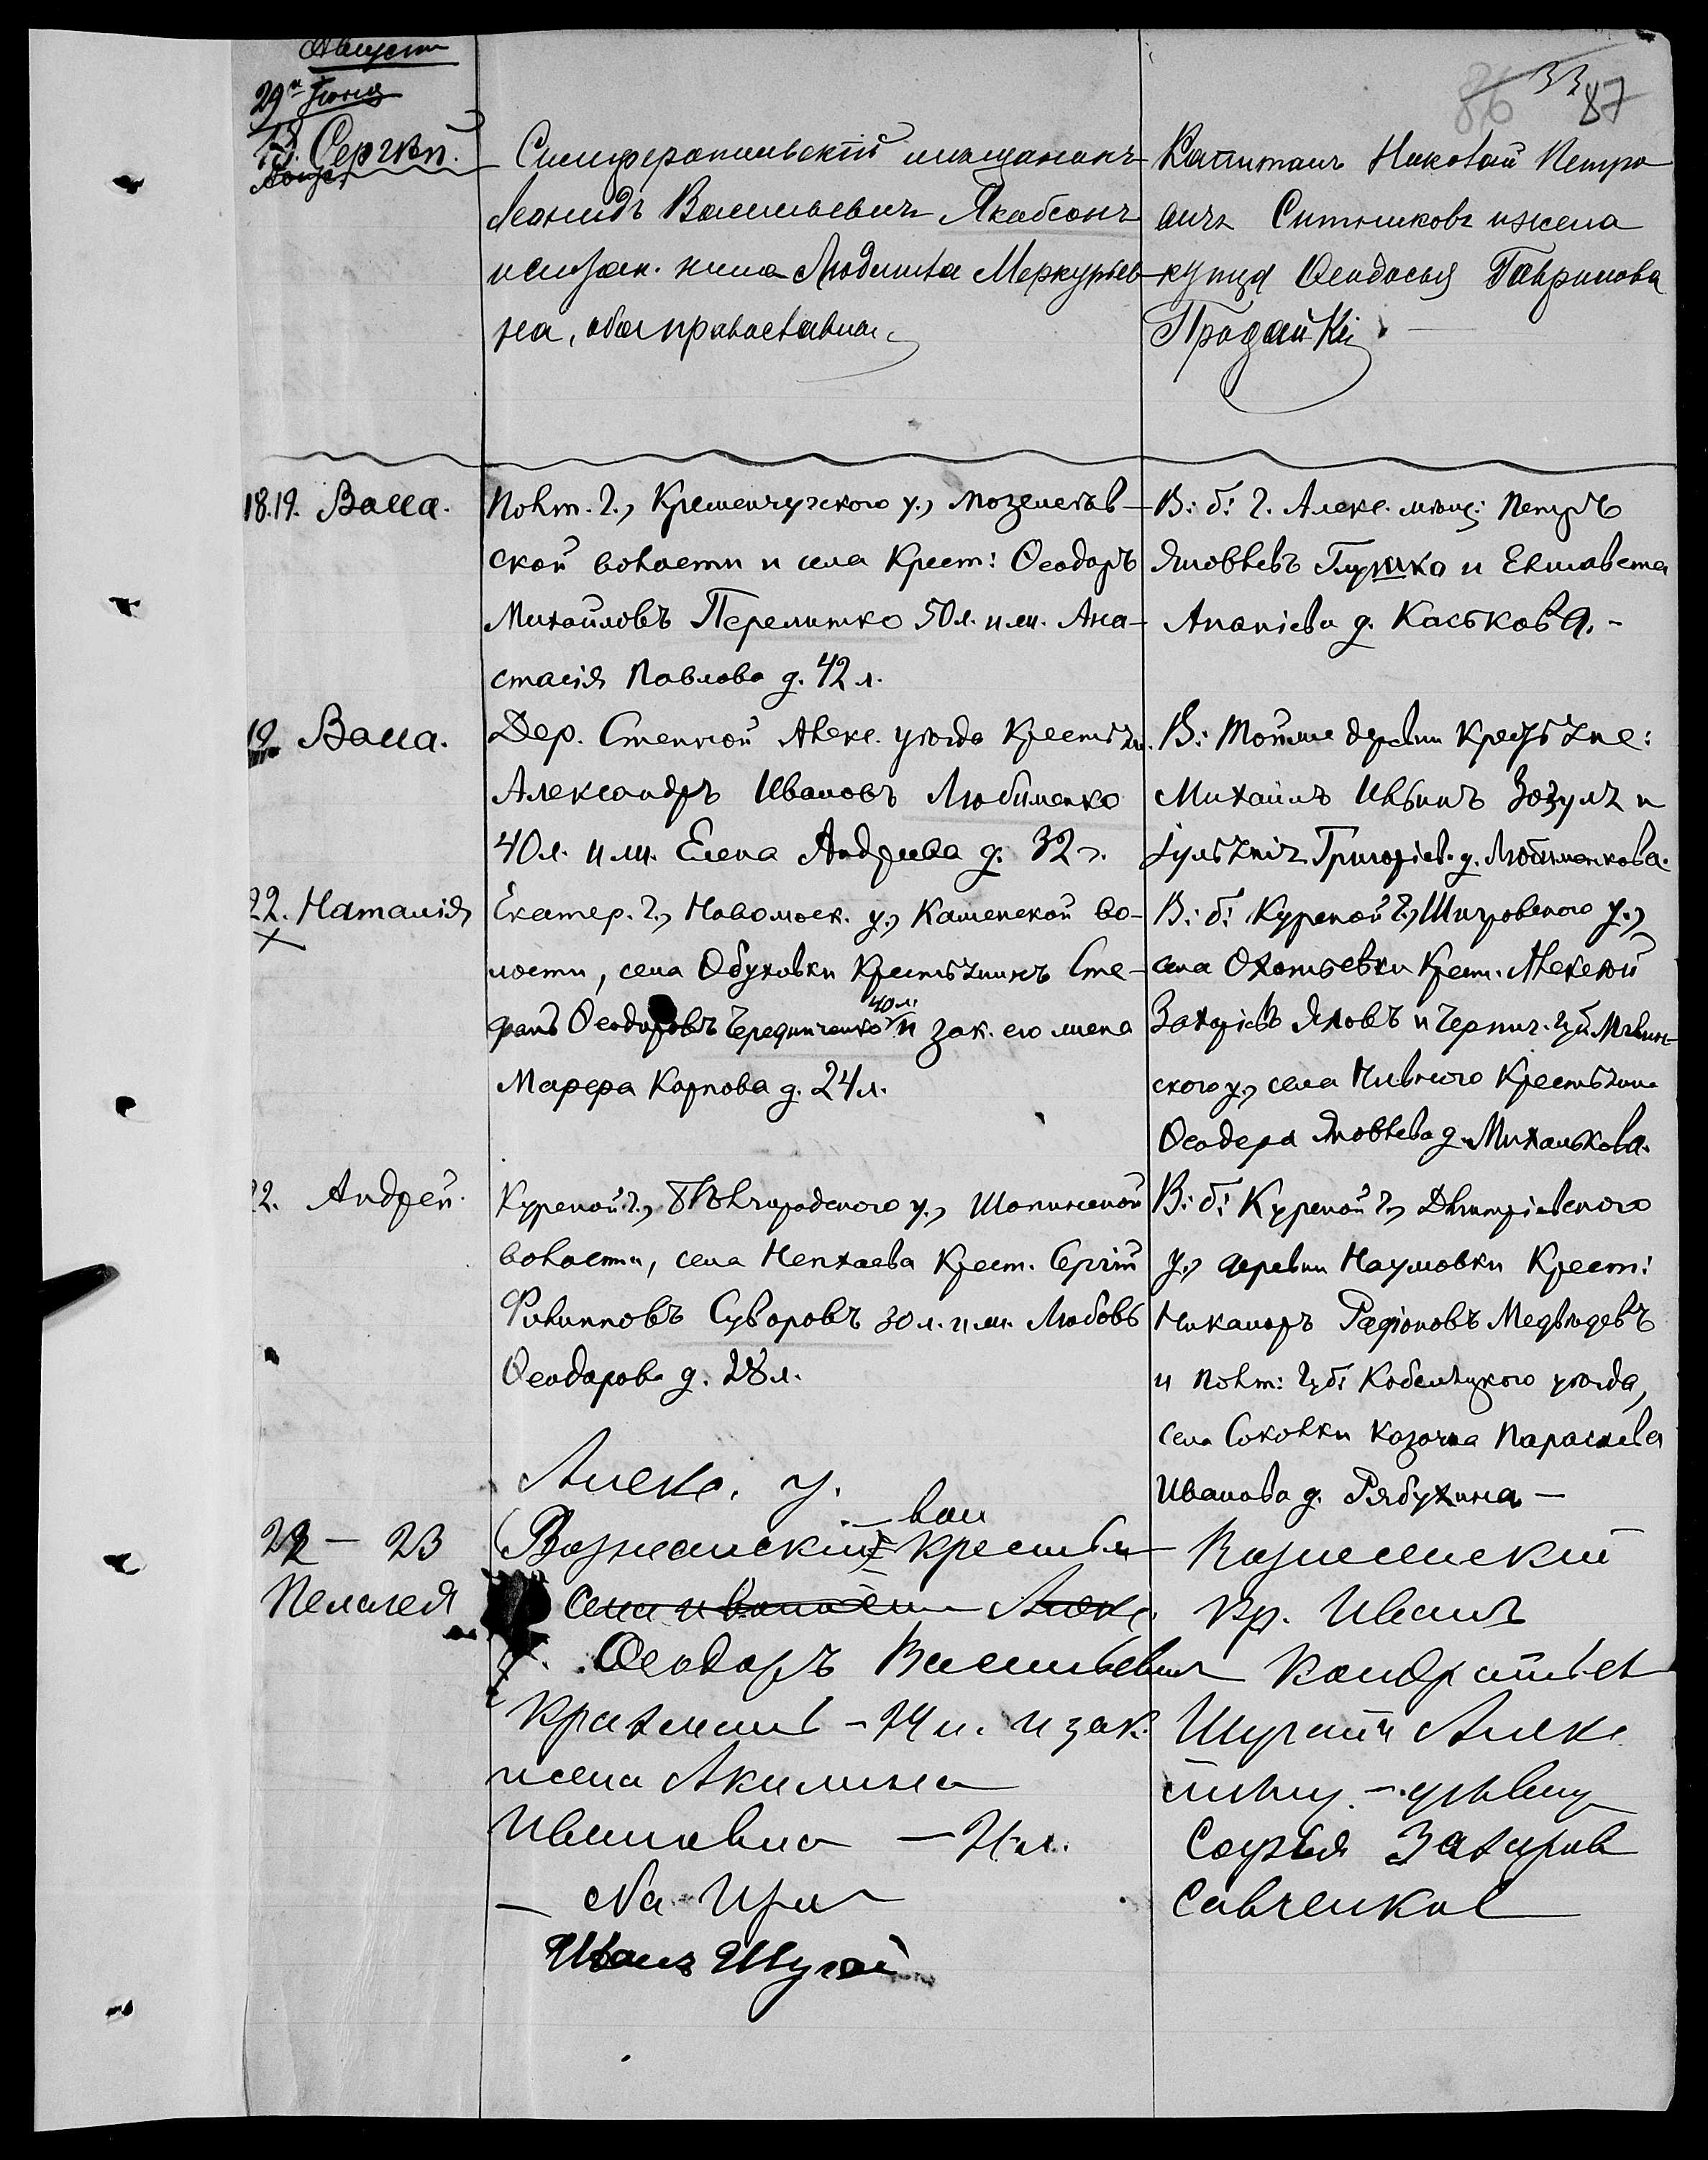 Августъ
29го Іюня
86 33 87
Сергѣй.
Симферопольскій мѣщанинъ
Леонидъ Васильевичъ Якобсонъ
и закон. жена Людмила Меркурьев-
на, оба православные
Капитанъ Николай Петро
вичъ Ситниковъ и жена
купца Ѳеодосья Гаврилова
Продайкі
18.19. Васса.
Полт. г., Кременчугского у.,
ской волости и села Крест: Ѳеодоръ
Михайловъ Перемитко 50 л. и ж. Ана-
стасія Павлова д. 42 л.
В: б: г. Алекс. мѣщ: Петръ
Яковлевъ Глушко и Елисавета
Ананіева д. Каськова.-
19 Васса.
Дер. Степной Алекс. уѣзда Крестьян.
Александръ Ивановъ Любименко
40 л. и ж. Елена Андреева д. 32 г.
В: Тойже деревни Крестьяне:
Михаилъ Ивановъ Зозуля и
Іульянія Григоріев. д. Любименкова.
22. Наталія
Екатер. г., Новомоск. у., Каменской во-
лости, села Обуховки Крестьянинъ Сте-
фанъ Ѳеодоровъ Чередниченко 40 л. и зак. его жена
Марфа Карпова д. 24 л.
В: б: Курской г., Щигровского у.,
села Охотьевки Крест. Алексѣй
Захаріевъ Яховъ и Черниг. губ. Мглин-
ского у., села Нивного Крестьян.
Ѳеодора Яковлева д. Михалькова.
22. Андрей.
Курской г., Бѣлгородского у., Шопинской
волости, села Непхаева Крест. Сергій
Филипповъ Суворовъ 30 л. и ж. Любовь
Ѳеодорова д. 28 л.
В: б: Курской г., Дмитріевского
у., деревни Наумовки Крест:
Никаноръ Радіоновъ Медвѣдевъ
и Полт: губ: Кобелякского уѣзда,
села Соколки козачка Параскева
Иванова д. Рябухина —
22 — 23
Пелагея
Алекс. у.
вол
Вознесенский крестьян
села и волости Алекс.
у. Ѳеодоръ Васильевичъ
— 24 л. и зак.
жена Акилина
Ивановна — 21 л.
Иванъ Шугай
Вознесенский
кр. Иванъ
Кондратьев
Шугай и Алекс
Софья Захаров
Савченков